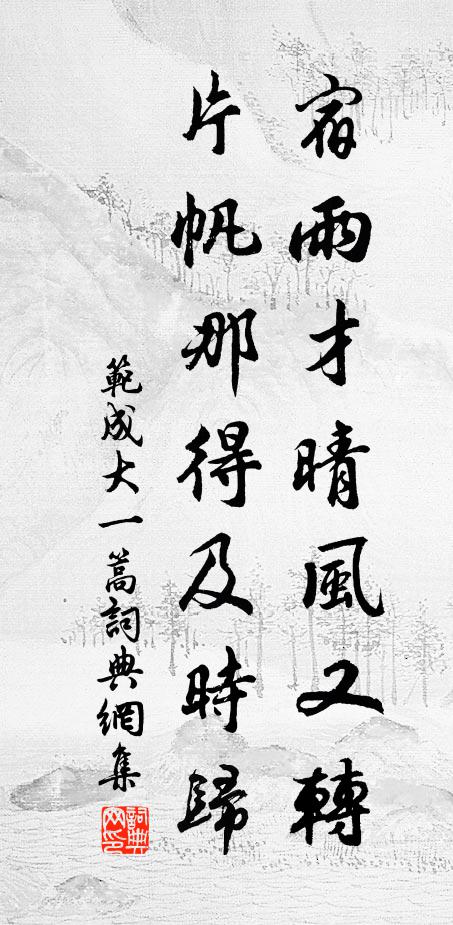 宿雨才晴風又轉
片帆那得及時歸
範成大一篙詞典網集
詞典网印